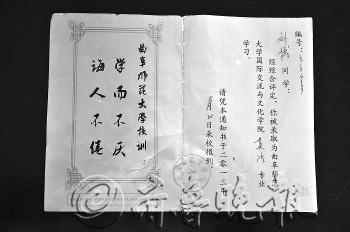 编号：
同学：
经综合评定，你被录取为曲阜师范
大学国际交流与文化学院
专业
学习。
请凭本通知书于二零一三年
月 日来校报到
曲阜师范大学校训
学而不厌
诲人不倦